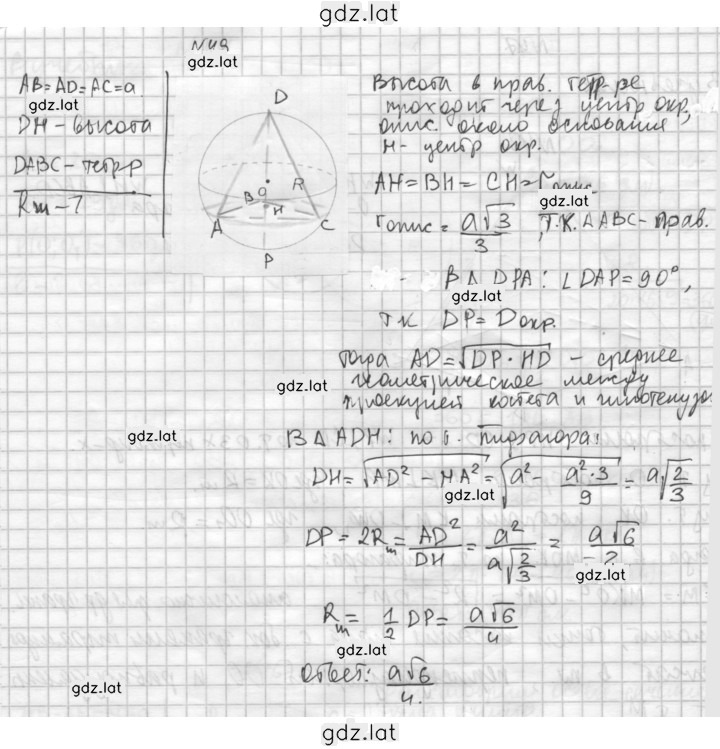 gdz.lat
N49
gdz.lat
AB=AD=AC=a
gdz.lat
DH - высота
DABC - тетр-р
Rш - ?
D
B
O
R
H
A
C
P
Высота в прав. тетр-ре
проходит через центр окр,
опис. около основания
H - центр окр.
AH = BH = CH = rопис.
gdz.lat
rопис = a√3/3, т.к. ΔABC - прав.
В Δ DPA: ∠DAP = 90°,
gdz.lat
т к DP = Dокр.
Тогда AD = √(DP · HD) - среднее
gdz.lat
геометрическое между
проекцией катета и гипотенузо
gdz.lat
В Δ ADH: по т. Пифагора:
DH = √(AD² - HA²) = √(a² - a²·3/9) = a√(2/3)
gdz.lat
DP = 2Rш = AD²/DH = a²/(a√(2/3)) = a√6/2
gdz.lat
Rш = 1/2 DP = a√6/4
gdz.lat
Ответ: a√6/4.
gdz.lat
gdz.lat